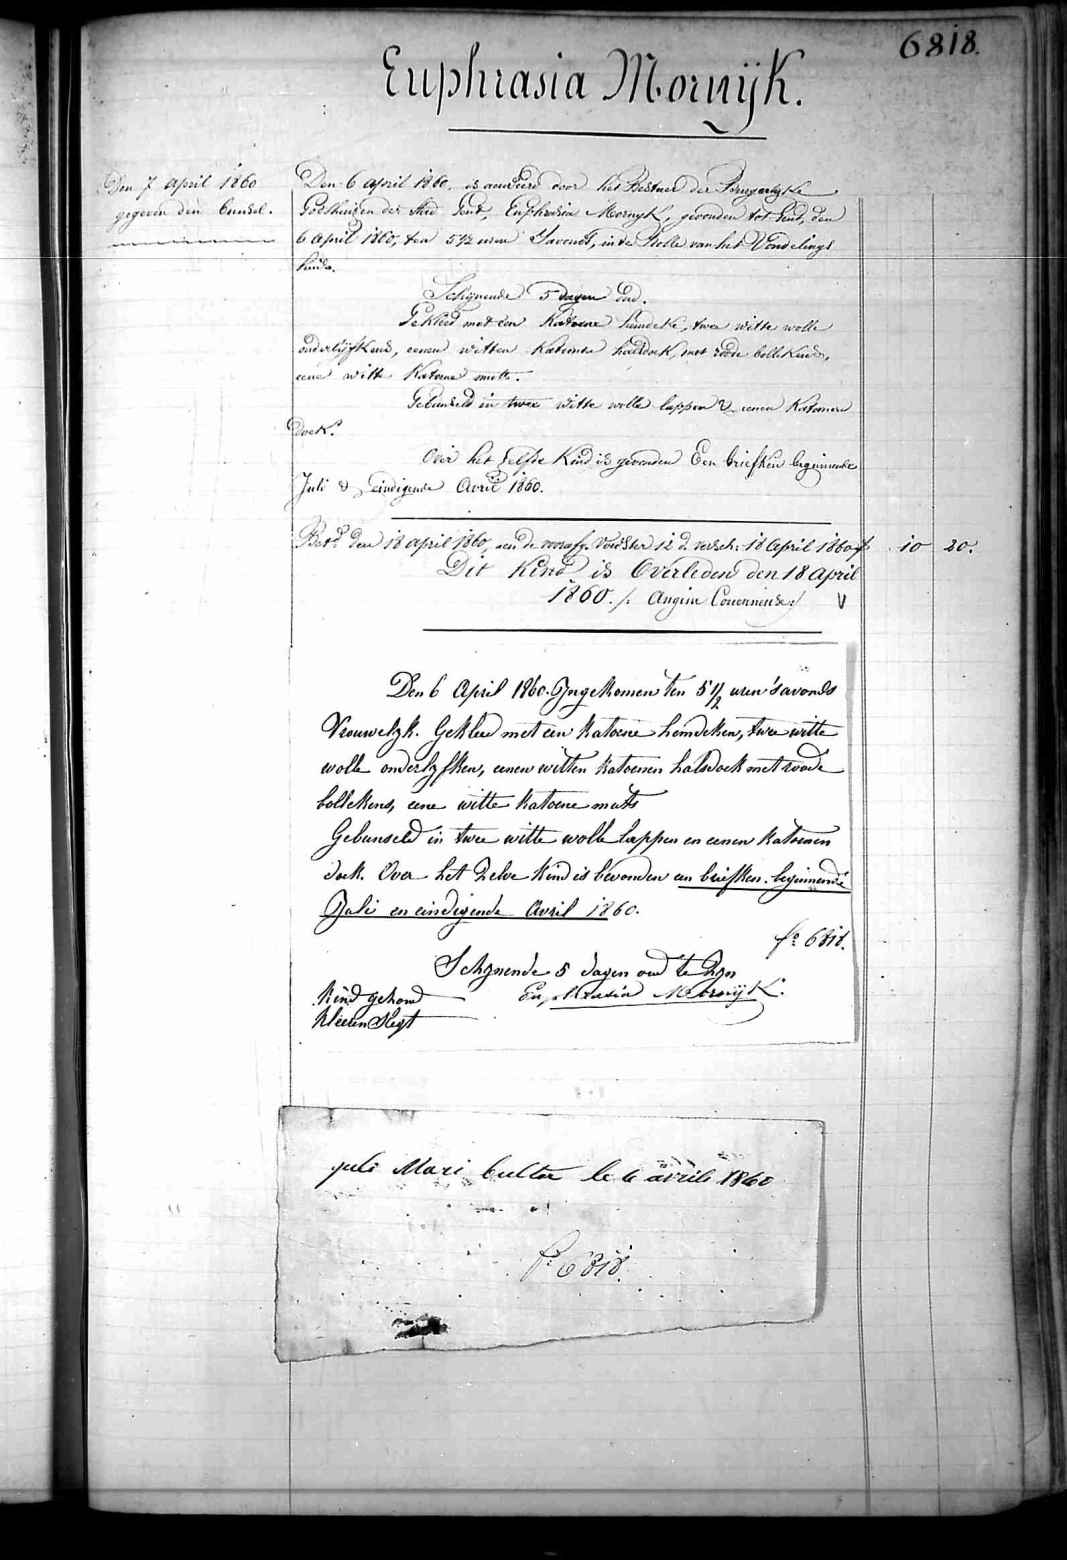 6818.
Euphrasia Mornÿk.
Den 7 april 1860
gegeven den bunsel.
Den 6 april 1860, is aenveird door het Bestuer der Burgerlyke
Godshuizen der Stad Gent, Euphrasia Mornyk, gevonden tot Gent, den
6 april 1860, ten 5 1/2 uren 'Savonds, in de Rolle van het Vondelings
huis.
Schynende 5 dagen oud.
Gekleed met een Katoene hemdeke, twee witte wolle
onderlyfkens, eenen witten Katoenen halsdoek, met roode bollekens,
eene witte Katoene mutse.
Gebunseld in twee witte wolle lappen & eenen Katoenen
doek.
Over het zelfde Kind is gevonden Een briefken beginnende
Juli & eindigende Avril 1860.
Betd den 18 april 1860, aen de voorsz. Voedster 12 d. versch: 18 April 1860 f 10 20.
Dit Kind is Overleden den 18 april
1860. /. Angine Couenneuse /
Den 6 April 1860. Ingekomen ten 5 1/2 uren 's avonds
Vrouwelyk. Gekleed met een katoene hemdeken, twee witte
wolle onderlyfken, eenen witten katoenen halsdoek met roode
bollekens, eene witte katoene muts
Gebunseld in twee witte wolle lappen en eenen katoenen
doek. Over het Zelve kind is bevonden een briefken beginnende
Juli en eindigende Avril 1860.
fo 6818.
Schynende 5 dagen oud te Zyn
Kind gezond
Euphrasia Mornÿk.
Kleeren Slegt
juli Mari bultee le 6 avrile 1860
fo 6818.